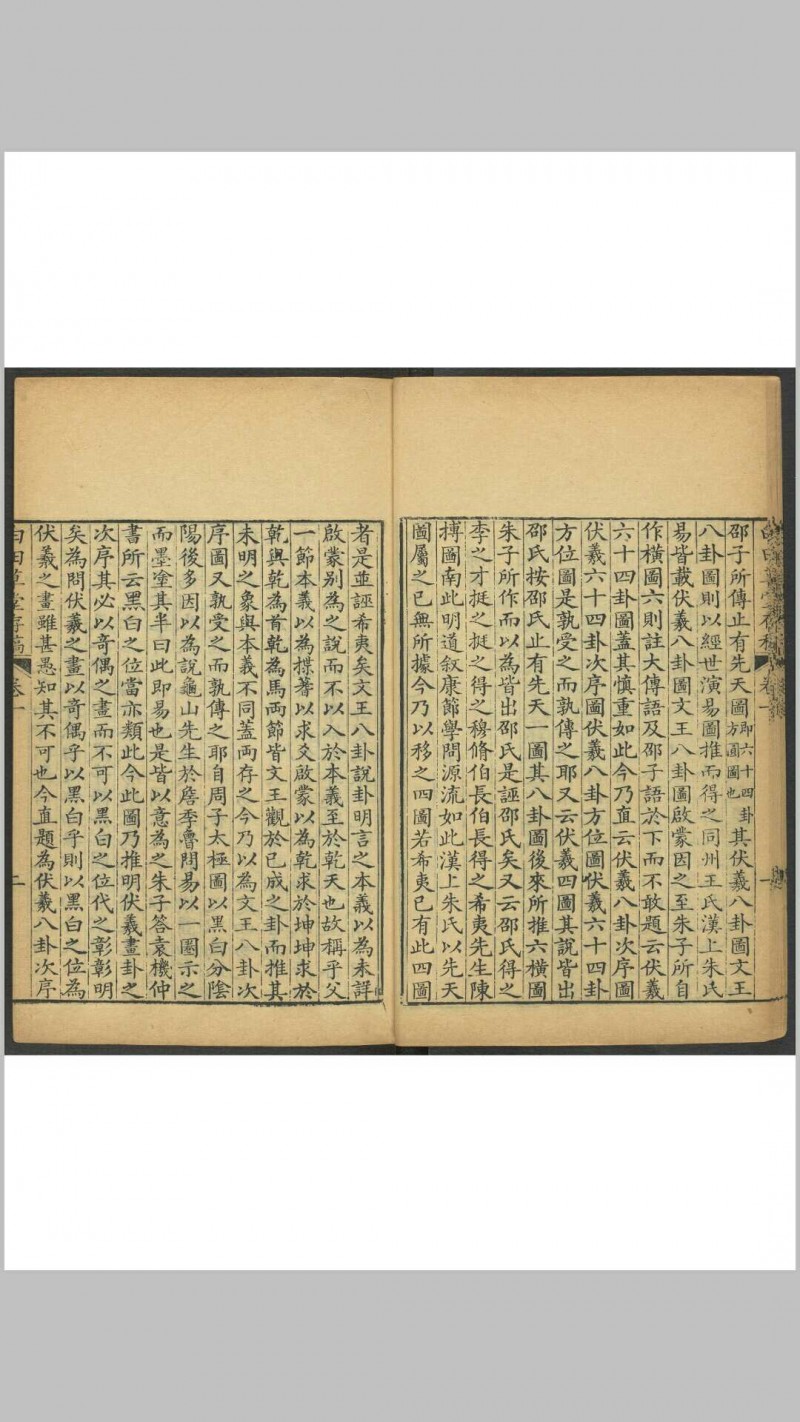 邵子所傳止有先天圖即六十四卦方圓圖也其伏羲八卦圖文王
八卦圖則以經世演易圖推而得之同州王氏漢上朱氏
易皆載伏羲八卦圖文王八卦圖啟蒙因之至朱子所自
作橫圖六則註大傳語及邵子語於下而不敢題云伏羲
六十四卦圖蓋其慎重如此今乃直云伏羲八卦次序圖
伏羲六十四卦次序圖伏羲八卦方位圖伏羲六十四卦
方位圖是孰受之而孰傳之耶又云伏羲四圖其說皆出
邵氏按邵氏止有先天一圖其八卦圖後來所推六橫圖
朱子所作而以為皆出邵氏是誣邵氏矣又云邵氏得之
李之才挺之挺之得之穆脩伯長伯長得之希夷先生陳
摶圖南此明道叙康節學問源流如此漢上朱氏以先天
圖屬之已無所據今乃以移之四圖若希夷已有此四圖
者是並誣希夷矣文王八卦說卦明言之本義以為未詳
啟蒙別為之說而不以入於本義至於乾天也故稱乎父
一節本義以為揲蓍以求爻啟蒙以為乾求於坤坤求於
乾與乾為首乾為馬兩節皆文王觀於已成之卦而推其
未明之象與本義不同蓋兩存之今乃以為文王八卦次
序圖又孰受之而孰傳之耶自周子太極圖以黑白分陰
陽後多因以為說龜山先生於詹季魯問易以一圈示之
而墨塗其半曰此即易也是皆以意為之朱子答袁機仲
書所云黑白之位當亦類此今此圖乃推明伏羲畫卦之
次序其必以奇偶之畫而不可以黑白之位代之彰彰明
矣為問伏羲之畫以奇偶乎以黑白乎則以黑白之位為
伏羲之畫雖甚愚知其不可也今直題為伏羲八卦次序
白田草堂存稿 卷一 二